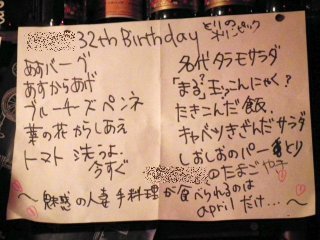 32th Birthday
とりの
オリンピック
あすバーグ
あすからあげ
ブルーチーズペンネ
菜の花からしあえ
トマト 洗うよ
今すぐ
名代 タラモサラダ
「まる?玉っこんにゃく?
たきこんだ飯。
キャベツきざんだサラダ
しおしおのパー
のたまごやき
〜魅惑の人妻手料理が食べられるのは
aprilだけ…〜